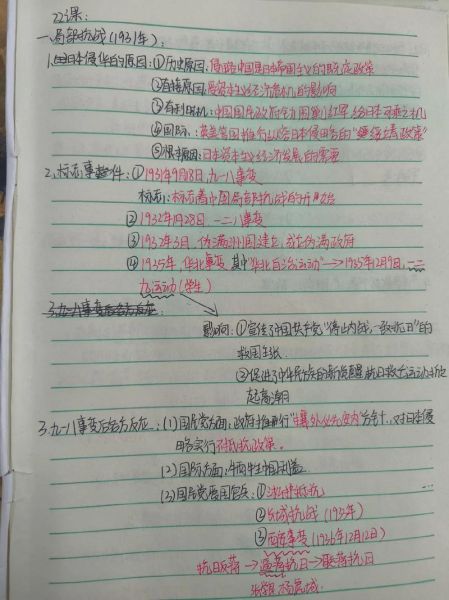 22课:
一.局部抗战(1931年):
1.日本侵华的原因:①历史原因:侵略中国是日本帝国主义的既定政策
②直接原因:资本主义经济危机的影响
③有利时机:中国国民政府全力围剿红军,给日本可乘之机
④国际:英美等国推行以容日本侵略的"绥靖政策"
⑤根本原因:日本资本主义经济发展的需要
2.标志事件:①1931年9月18日,九一八事变
标志:标志着中国局部抗战的开始
②1932年1月28日,一二八事变
③1932年3月,伪满洲国建立,成立伪满政府
④1935年,华北事变,其中"华北自治运动"→1935年12月9日,一二
九运动(学生)
3.九一八事变后各方反应
影响:①宣传了中国共产党"停止内战,一致抗日"的
救国主张
②促进了中华民族的新觉醒,抗日救亡运动掀
起高潮
3.九一八事变后各方反应:(1)国民党方面:政府推行"攘外必先安内"方针,对日本侵
略实行不抵抗政策。
(2)国际方面:牺牲中国利益
(3)国民党爱国官兵:①淞沪抵抗
②长城抗战(1933年)
③西安事变(1936年12月12日)
抗日反蒋→逼蒋抗日→联蒋抗日
张学良 杨虎城